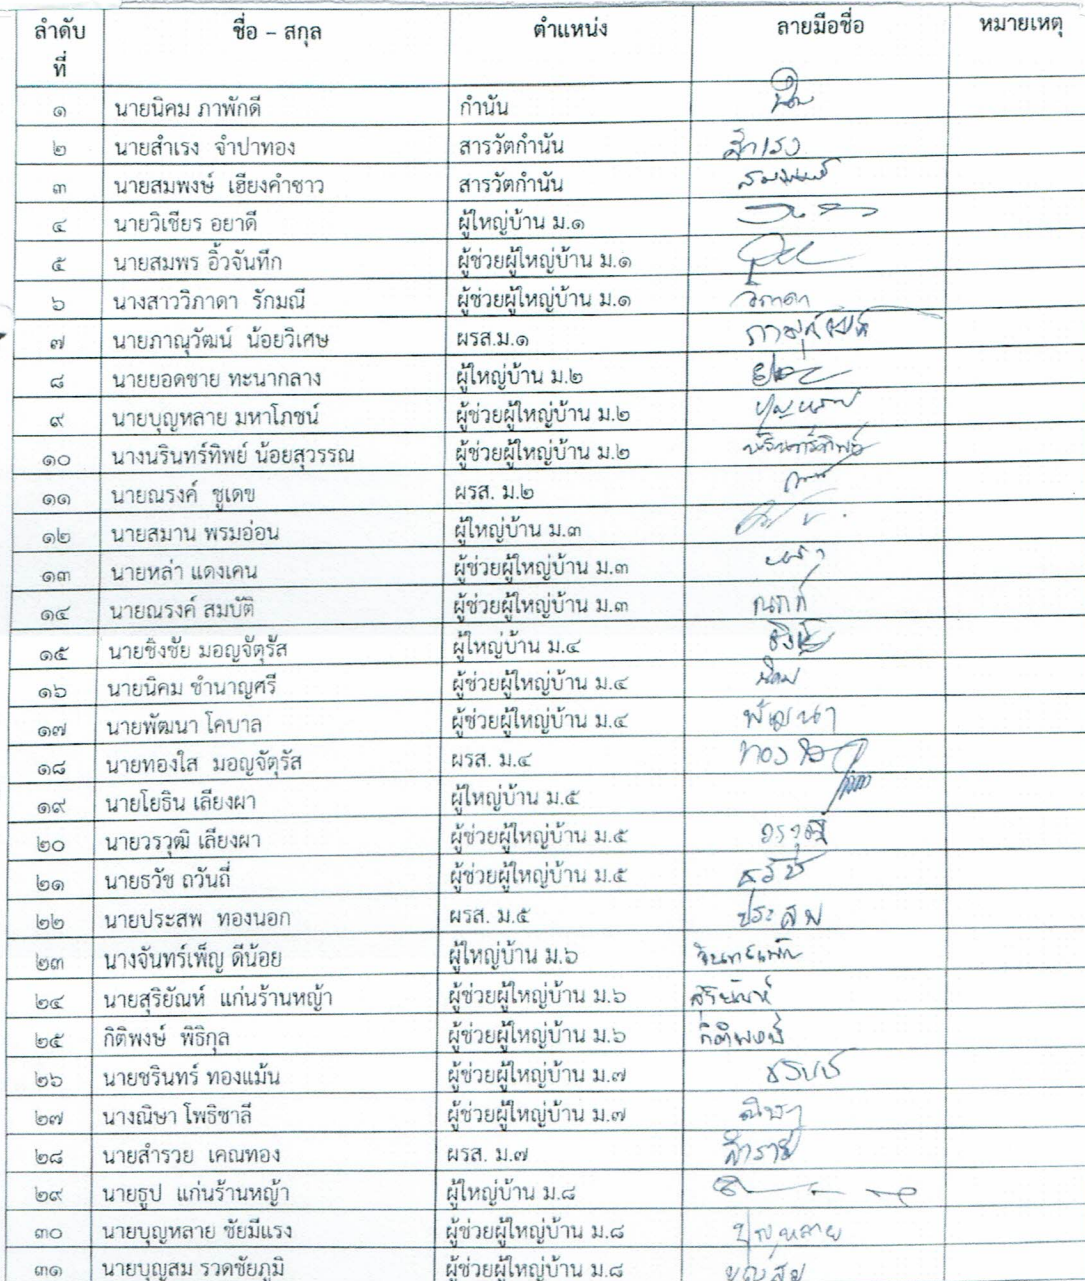 ลำดับที่ ชื่อ – สกุล ตำแหน่ง ลายมือชื่อ หมายเหตุ
๑ นายนิคม ภาพักดี กำนัน
๒ นายสำเรง จำปาทอง สารวัตกำนัน สำเรง
๓ นายสมพงษ์ เฮียงคำชาว สารวัตกำนัน สมพงษ์
๔ นายวิเชียร อยาดี ผู้ใหญ่บ้าน ม.๑
๕ นายสมพร อิ้วจันทึก ผู้ช่วยผู้ใหญ่บ้าน ม.๑
๖ นางสาววิภาดา รักมณี ผู้ช่วยผู้ใหญ่บ้าน ม.๑ วิภาดา
๗ นายภาณุวัฒน์ น้อยวิเศษ ผรส.ม.๑ ภาณุวัฒน์
๘ นายยอดชาย ทะนากลาง ผู้ใหญ่บ้าน ม.๒
๙ นายบุญหลาย มหาโภชน์ ผู้ช่วยผู้ใหญ่บ้าน ม.๒ บุญหลาย
๑๐ นางนรินทร์ทิพย์ น้อยสุวรรณ ผู้ช่วยผู้ใหญ่บ้าน ม.๒ นรินทร์ทิพย์
๑๑ นายณรงค์ ชูเดข ผรส. ม.๒
๑๒ นายสมาน พรมอ่อน ผู้ใหญ่บ้าน ม.๓
๑๓ นายหล่า แดงเคน ผู้ช่วยผู้ใหญ่บ้าน ม.๓ หล่า
๑๔ นายณรงค์ สมบัติ ผู้ช่วยผู้ใหญ่บ้าน ม.๓
๑๕ นายชิงชัย มอญจัตุรัส ผู้ใหญ่บ้าน ม.๔
๑๖ นายนิคม ชำนาญศรี ผู้ช่วยผู้ใหญ่บ้าน ม.๔ นิคม
๑๗ นายพัฒนา โคบาล ผู้ช่วยผู้ใหญ่บ้าน ม.๔ พัฒนา
๑๘ นายทองใส มอญจัตุรัส ผรส. ม.๔ ทองใส
๑๙ นายโยธิน เลียงผา ผู้ใหญ่บ้าน ม.๕
๒๐ นายวรวุฒิ เลียงผา ผู้ช่วยผู้ใหญ่บ้าน ม.๕ วรวุฒิ
๒๑ นายธวัช ถวันถี่ ผู้ช่วยผู้ใหญ่บ้าน ม.๕ ธวัช
๒๒ นายประสพ ทองนอก ผรส. ม.๕ ประสพ
๒๓ นางจันทร์เพ็ญ ดีน้อย ผู้ใหญ่บ้าน ม.๖ จันทร์เพ็ญ
๒๔ นายสุริยัณห์ แก่นร้านหญ้า ผู้ช่วยผู้ใหญ่บ้าน ม.๖ สุริยัณห์
๒๕ กิติพงษ์ พิธิกุล ผู้ช่วยผู้ใหญ่บ้าน ม.๖ กิติพงษ์
๒๖ นายชรินทร์ ทองแม้น ผู้ช่วยผู้ใหญ่บ้าน ม.๗
๒๗ นางณิษา โพธิชาลี ผู้ช่วยผู้ใหญ่บ้าน ม.๗ ณิษา
๒๘ นายสำรวย เคณทอง ผรส. ม.๗ สำรวย
๒๙ นายธูป แก่นร้านหญ้า ผู้ใหญ่บ้าน ม.๘
๓๐ นายบุญหลาย ชัยมีแรง ผู้ช่วยผู้ใหญ่บ้าน ม.๘ บุญหลาย
๓๑ นายบุญสม รวดชัยภูมิ ผู้ช่วยผู้ใหญ่บ้าน ม.๘ บุญสม